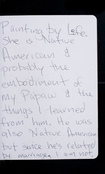 Painting by Life.
She is Native
American &
probably the
embodiment of
my Papaw & the
things I learned
from him. He was
also Native American
but since he's related
by marriage I am not.